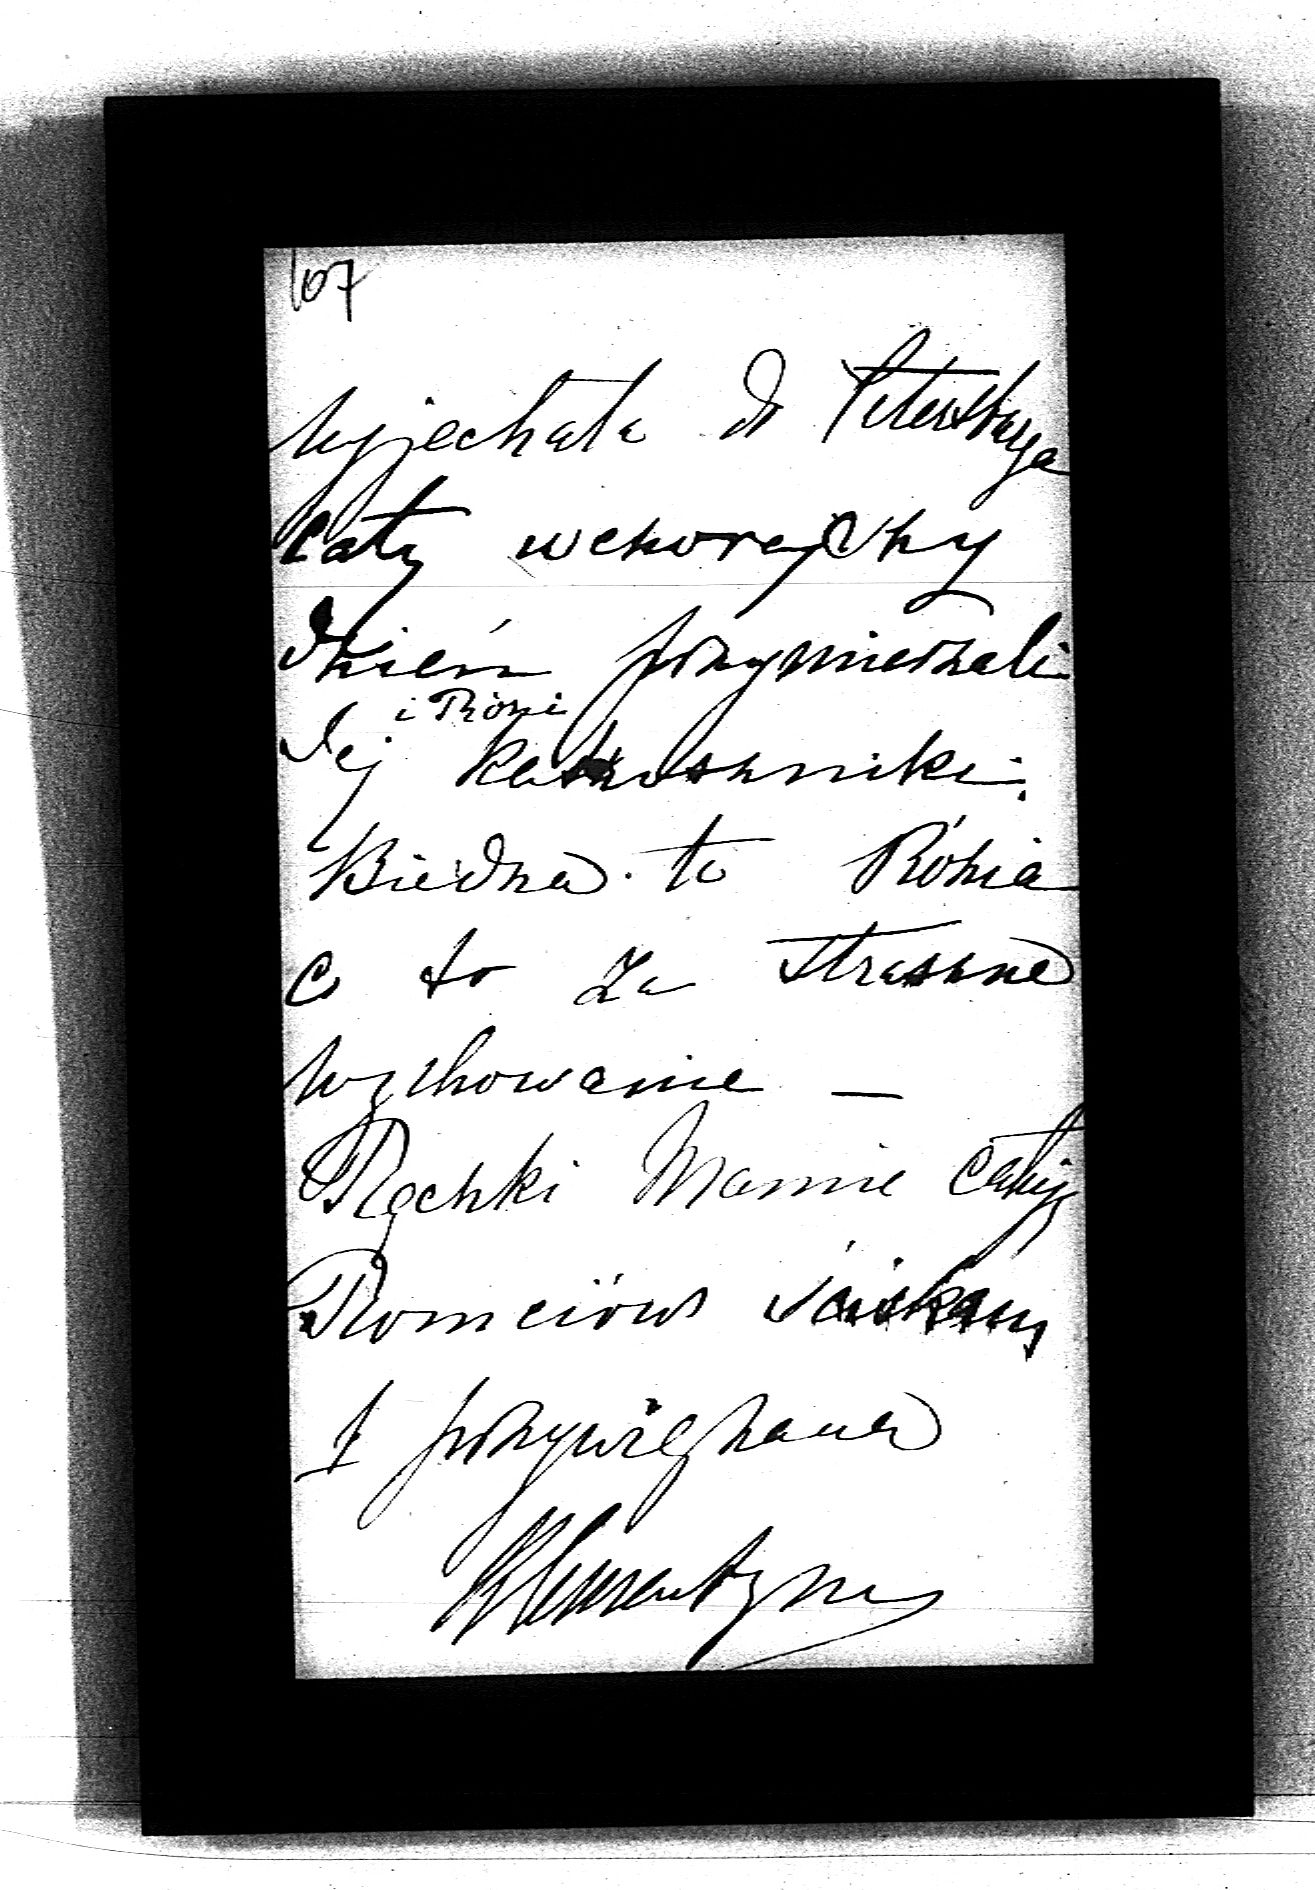 107
wyjechała do Petersburga
cały wczorajszy
dzień przymierzali
i Rózi
Jej kakoszniki.
Biedna ta Rózia
co to za straszne
wychowanie —
Rączki Mamie całuję
Romciów ściskam
I przywiązana
Klementyna